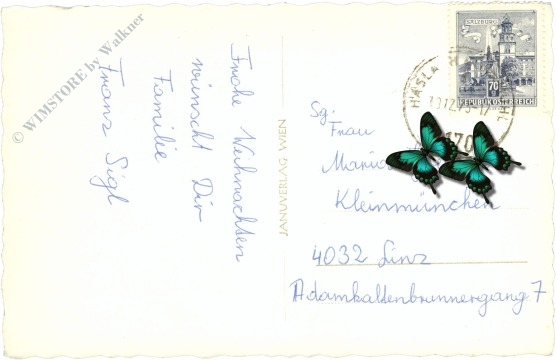 © WIMSTORE by Walkner
Frohe Weihnachten
wünscht Dir
Familie
Franz Sigl
JANUVERLAG WIEN
SALZBURG
70
REPUBLIK ÖSTERREICH
HASLA
170
Sg.
Frau
Kleinmünchen
4032 Linz
Adamkaltenbrunnergang 7